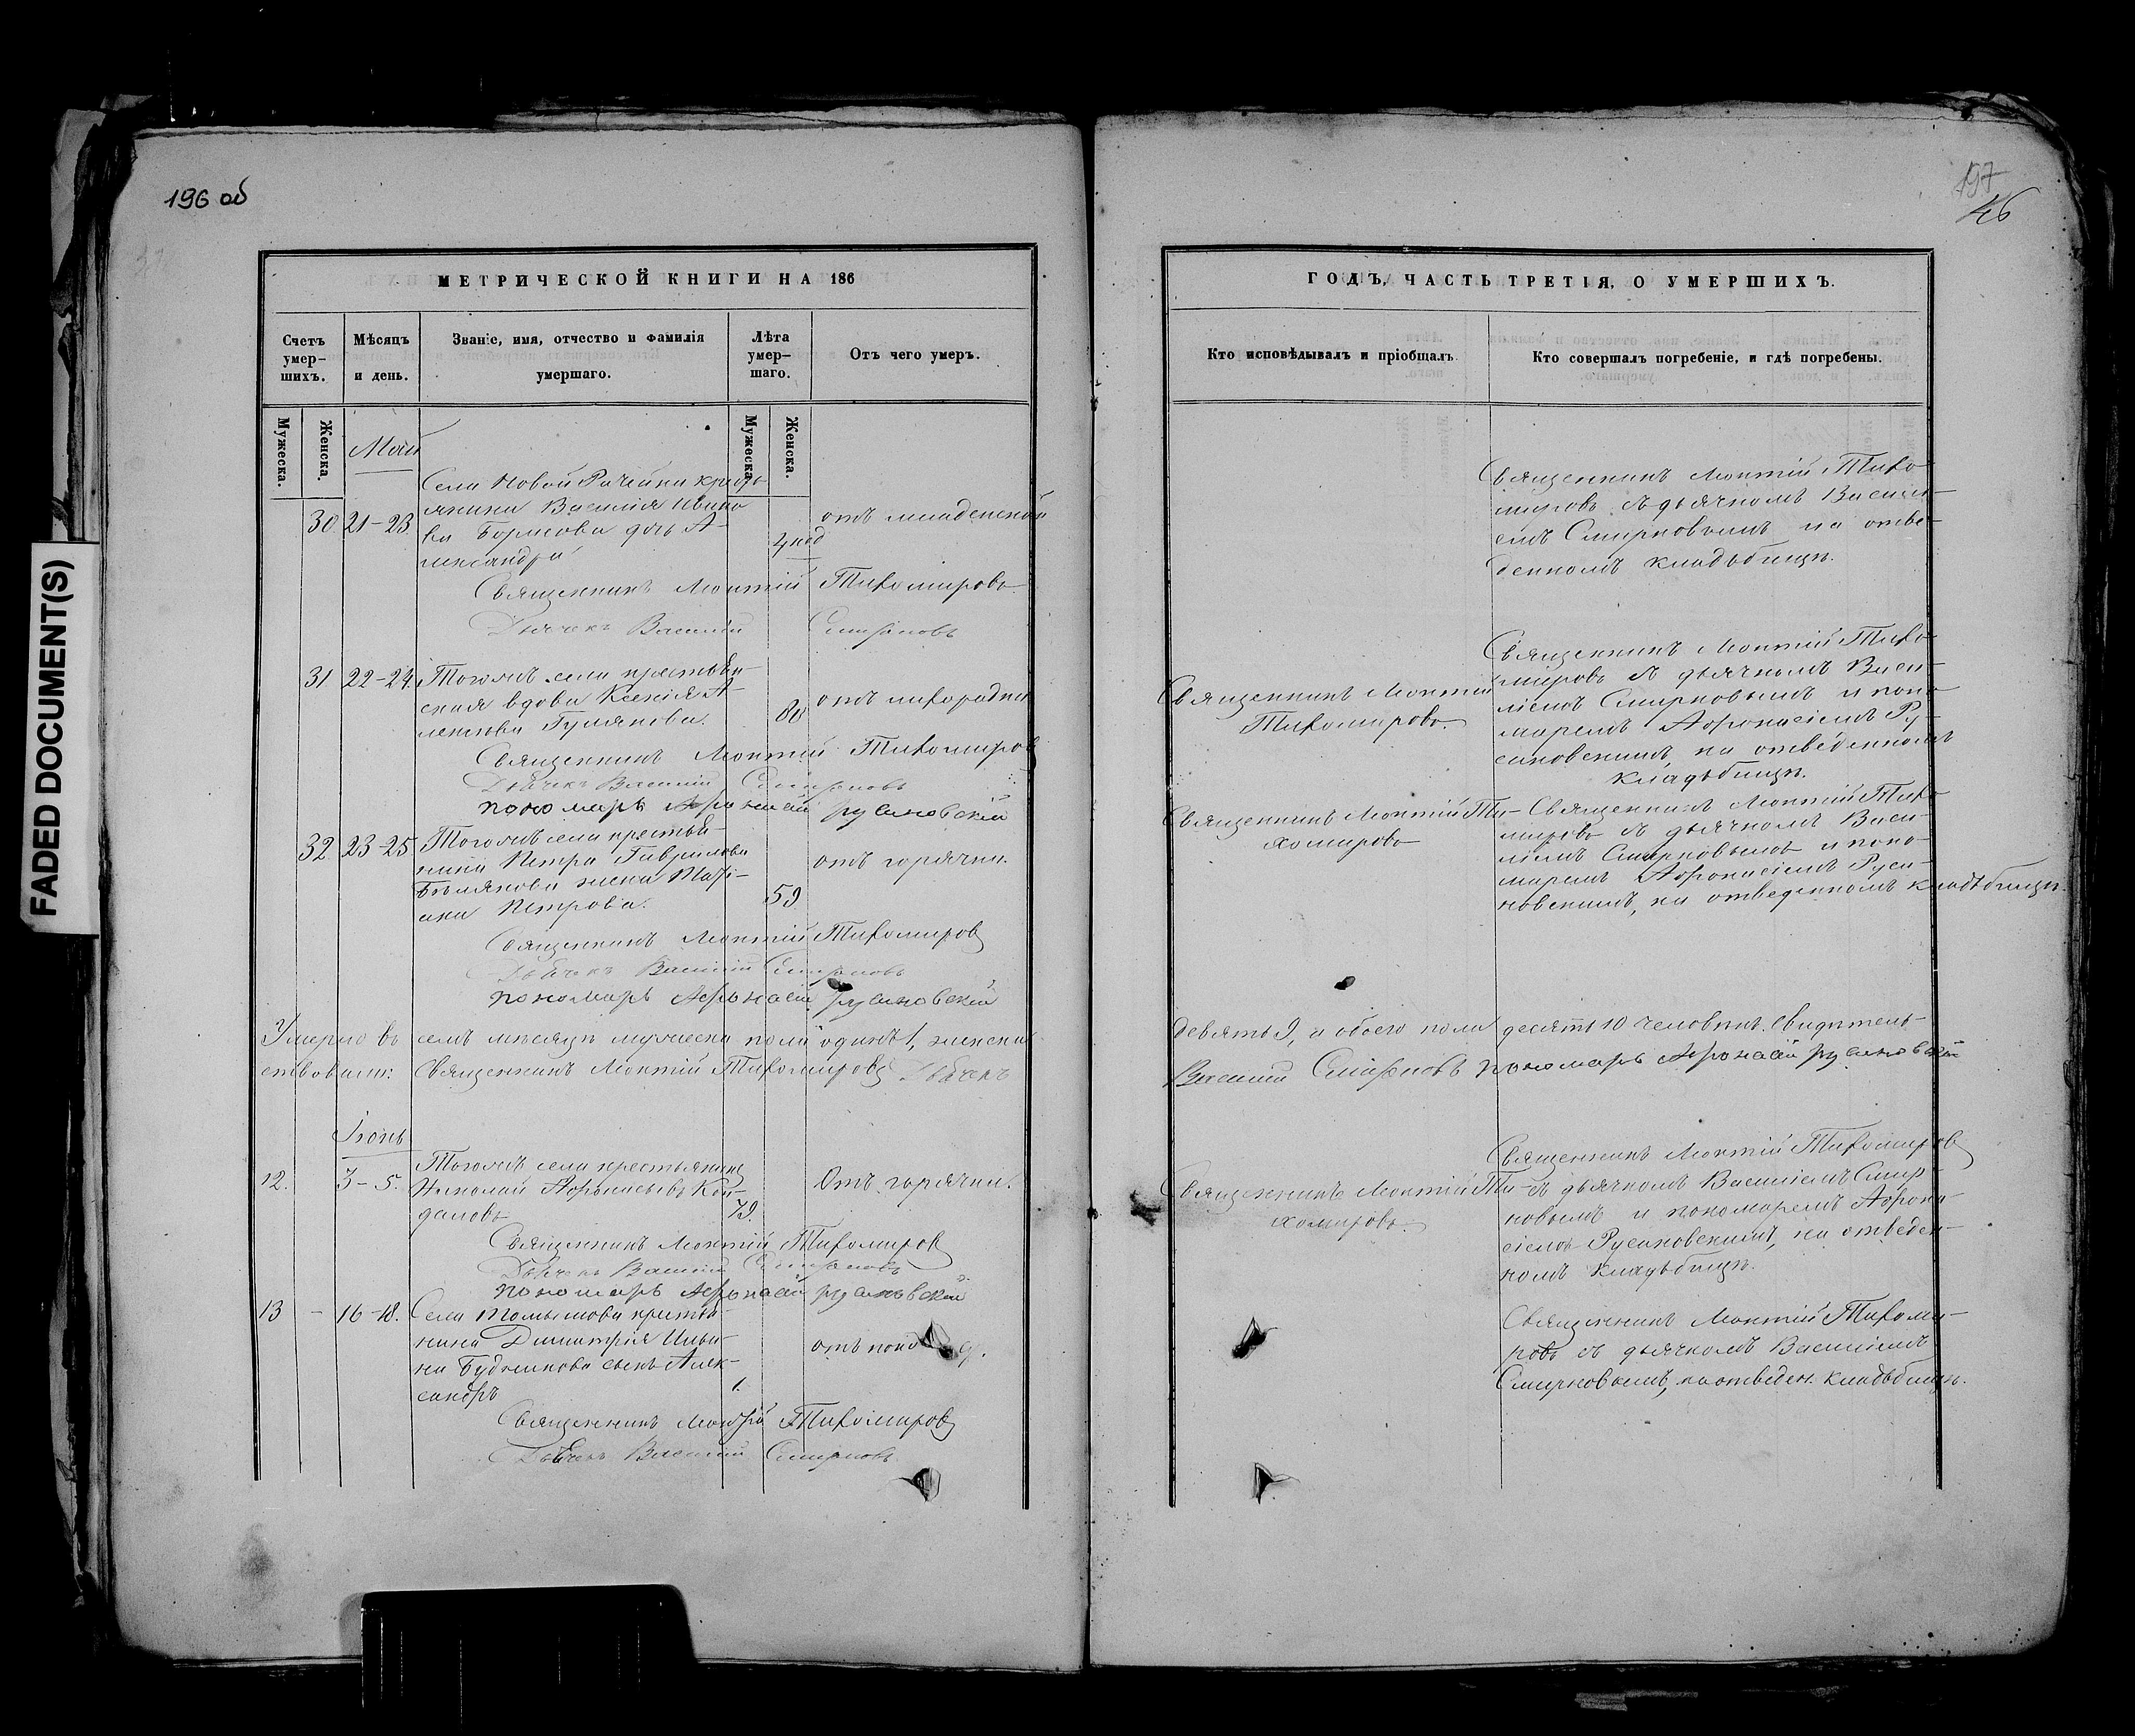 196 об
197
46
FADED DOCUMENT(S)
МЕТРИЧЕСКОЙ КНИГИ НА 186
Счетъ умер-шихъ.
Мѣсяцъ и день.
Званіе, имя, отчество и фамилія умершаго.
Лѣта умер-шаго.
Отъ чего умеръ.
Мужеска.
Женска.
Мужеска.
Женска.
Май
Села Новой Рачейки кресть-
30 21-23. янина Василія Ивано-
ва Борисова дочь А-
лександра
4 нед
отъ младенской
Священникъ Леонтій Тихомировъ
Дьячекъ Василій Смирновъ
31 22-24. Тогожъ села крестьян-
ская вдова Ксенія А-
лексѣева Гулянова.
80
отъ лихорадки
Священникъ Леонтій Тихомировъ
Дьячекъ Василій Смирновъ
пономарь Афонасій русановскій
32 23-25 Тогожъ села крестья-
нина Петра Гаврилова
Бѣлякова жена
Петрова.
59
отъ горячки.
Священникъ Леонтій Тихомировъ
Дьячекъ Василій Смирновъ
пономарь Афонасій русановскій
Умерло въ семъ мѣсяцѣ мужеска пола одинъ 1, женска
ствовали: Священникъ Леонтій Тихомировъ Дьячекъ
Іюнь
12. 3-5. Тогожъ села крестьянинъ
Николай Афонасьевъ Кон-
даловъ
79.
Отъ горячки.
Священникъ Леонтій Тихомировъ
Дьячекъ Василій Смирновъ
пономарь Афонасій русановскій
13 - 16-18. Села Томышова крестья-
нина Димитрія Ильи-
на сынъ Алек-
сандръ
1.
отъ
Священникъ Леонтій Тихомировъ
Дьячекъ Василій Смирновъ
ГОДЪ, ЧАСТЬ ТРЕТІЯ, О УМЕРШИХЪ.
Кто исповѣдывалъ и пріобщалъ.
Кто совершалъ погребеніе, и гдѣ погребены.
Священникъ Леонтій Тихо-
мировъ съ дьячкомъ Василі-
емъ Смирновымъ на отве-
денномъ кладбищѣ.
Священникъ Леонтій
Тихомировъ.
Священникъ Леонтій Тихо-
мировъ съ дьячкомъ Васи-
ліемъ Смирновымъ и поно-
маремъ Афонасіемъ Ру-
сановскимъ, на отведенномъ
кладбищѣ.
Священникъ Леонтій Ти-
хомировъ
Священникъ Леонтій Тихо-
мировъ съ дьячкомъ Васи-
ліемъ Смирновымъ и поно-
маремъ Афонасіемъ Руса-
новскимъ, на отведенномъ кладбищѣ.
девять 9, а обоего пола десять 10 человѣкъ. Свидѣтель-
Василій Смирновъ пономарь Афонасій русановскій
Священникъ Леонтій Ти-
хомировъ.
Священникъ Леонтій Тихомировъ
съ дьячкомъ Василіемъ Смир-
новымъ и пономаремъ Афона-
сіемъ Русановскимъ, на отведен-
номъ кладбищѣ.
Священникъ Леонтій Тихоми-
ровъ съ дьячкомъ Василіемъ
Смирновымъ, на отведен. кладбищѣ.